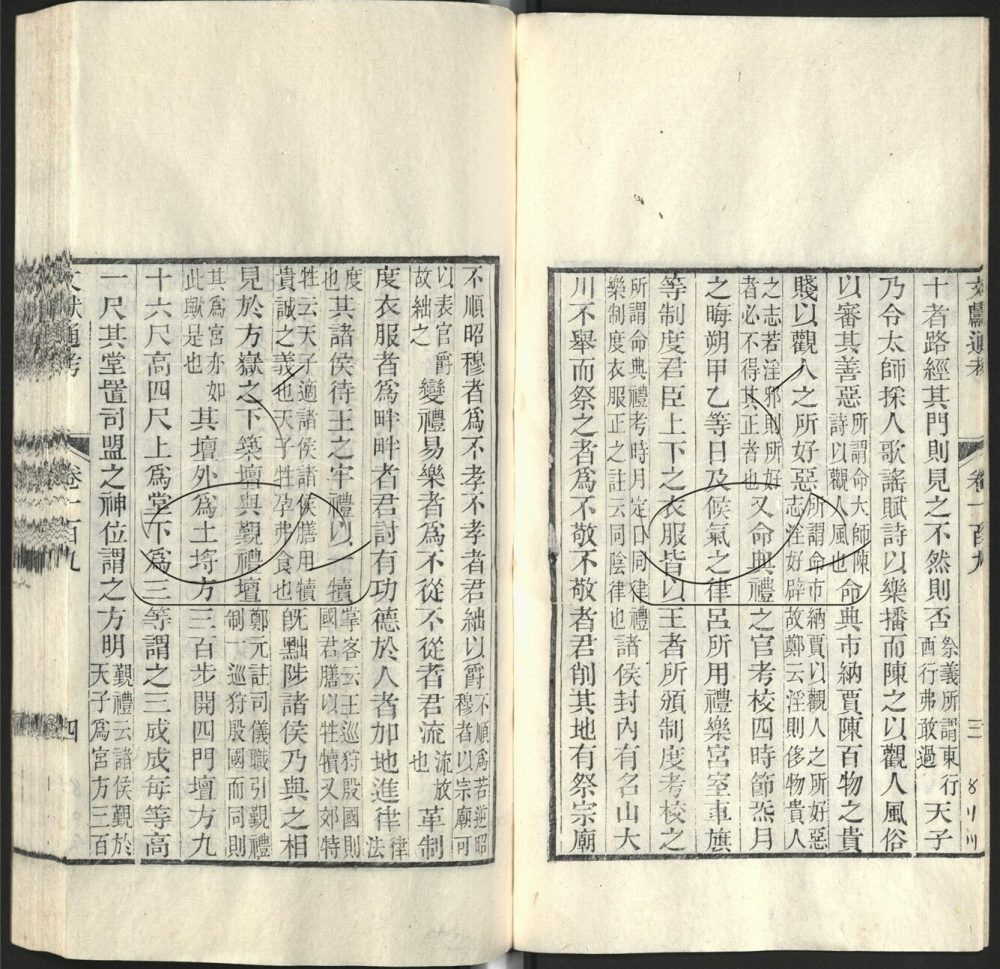 文獻通考 卷一百九 三
十者路經其門則見之不然則否祭義所謂東行西行弗敢過天子
乃令太師採人歌謠賦詩以樂播而陳之以觀人風俗
以審其善惡所謂命大師陳詩以觀人風也命典市納賈陳百物之貴
賤以觀人之所好惡所謂命市納賈以觀人之所好惡志淫好辟故鄭云淫則侈物貴人
之志若淫邪則所好者必不得其正者也又命典禮之官考校四時節氣月
之晦朔甲乙等日及候氣之律呂所用禮樂宮室車旗
等制度君臣上下之衣服皆以王者所頒制度考校之
所謂命典禮考時月定日同律禮樂制度衣服正之註云同陰律也諸侯封內有名山大
川不舉而祭之者爲不敬不敬者君削其地有祭宗廟
不順昭穆者爲不孝不孝者君絀以爵不順爲若逆昭穆者以宗廟可
以表官爵故絀之變禮易樂者爲不從不從者君流流放也革制
度衣服者爲畔畔者君討有功德於人者加地進律律法
度也其諸侯待王之牢禮以犢掌客云王巡狩殷國則國君膳以牲犢又郊特
牲云天子適諸侯諸侯膳用犢貴誠之義也天子牲孕弗食也旣黜陟諸侯乃與之相
見於方嶽之下築壇與覲禮壇鄭元註司儀職引覲禮制一巡狩殷國而同則
其爲宮亦如此歟是也其壇外爲土埓方三百步開四門壇方九
十六尺高四尺上爲堂下爲三等謂之三成成每等高
一尺其堂置司盟之神位謂之方明覲禮云諸侯覲於天子爲宮方三百
文獻通考 卷一百九 四